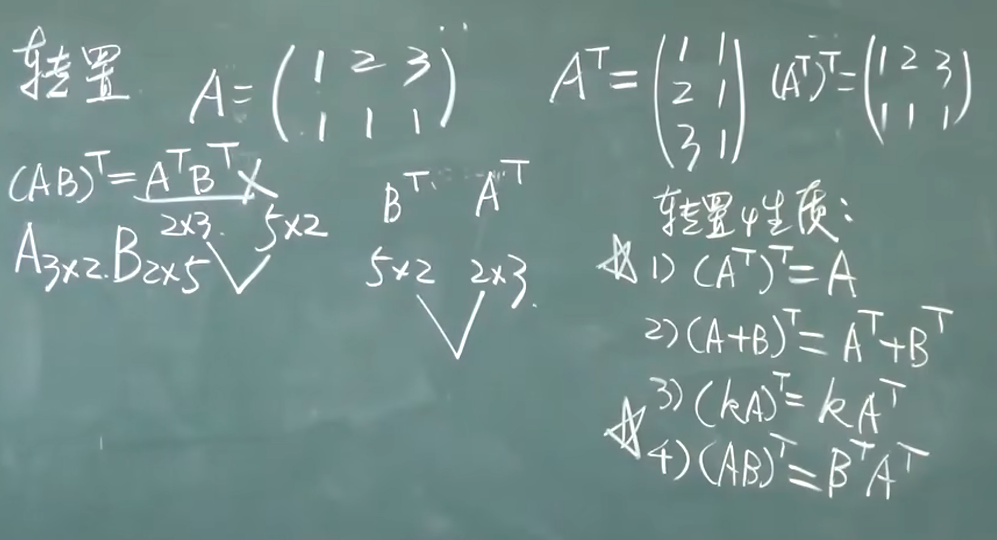 转置 A=(1 2 3
1 1 1)
Aᵀ=(1 1
2 1
3 1)
(Aᵀ)ᵀ=(1 2 3
1 1 1)
(AB)ᵀ=AᵀBᵀ×
2×3 5×2
A3×2 B2×5
Bᵀ Aᵀ
5×2 2×3
转置性质:
☆1) (Aᵀ)ᵀ=A
2) (A+B)ᵀ=Aᵀ+Bᵀ
3) (kA)ᵀ=kAᵀ
☆4) (AB)ᵀ=BᵀAᵀ